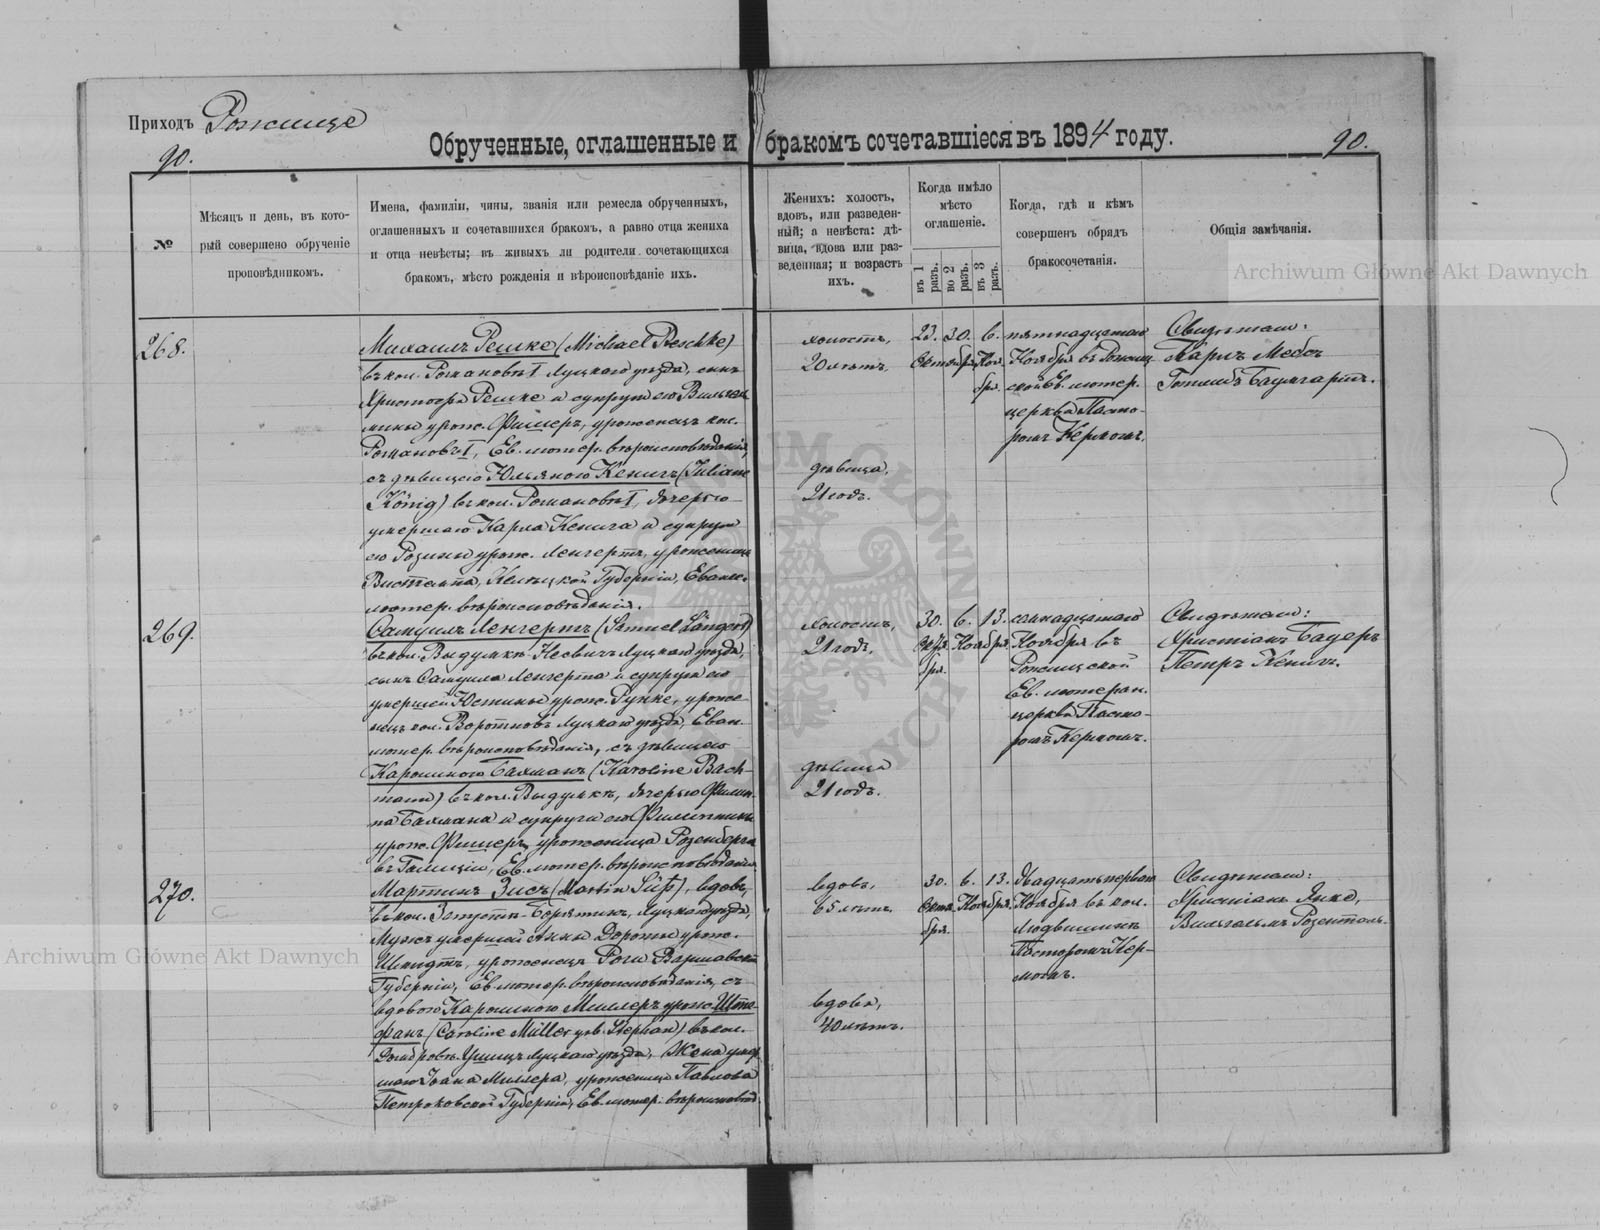 Приходъ Рожище
90.
Обрученные, оглашенные и бракомъ сочетавшіеся въ 1894 году.
90.
№
Мѣсяцъ и день, въ кото-
рый совершено обрученіе
проповѣдникомъ.
Имена, фамиліи, чины, званія или ремесла обрученныхъ,
оглашенныхъ и сочетавшихся бракомъ, а равно отца жениха
и отца невѣсты; въ живыхъ ли родители сочетающихся
бракомъ, мѣсто рожденія и вѣроисповѣданіе ихъ.
Женихъ: холостъ,
вдовъ, или разведен-
ный; а невѣста: дѣ-
вица, вдова или раз-
веденная; и возрастъ
ихъ.
Когда имѣло
мѣсто
оглашеніе.
въ 1 разъ.
во 2 разъ.
въ 3 разъ.
Когда, гдѣ и кѣмъ
совершенъ обрядъ
бракосочетанія.
Общія замѣчанія.
Archiwum Główne Akt Dawnych
268.
Михаилъ Решке (Michael Reschke)
въ кол. Романовъ I Луцкаго уѣзда, сынъ
Христофа Решке и супруги его Вильгель
мины урож. Фишеръ, уроженецъ кол.
Романовъ I, Ев. лютер. вѣроисповѣданія,
съ дѣвицею Юльяною Кенигъ (Juliane
König) въ кол. Романовъ I, дочерью
умершаго Карла Кенига и супруги
его Розины урож. Ленгертъ, уроженица
Кѣлецкой Губерніи, Еванг.
лютер. вѣроисповѣданія.
холостъ,
20 лѣтъ,
дѣвица,
21 годъ.
23. 30. 6.
Октября, Ноя-
бря.
пятнадцатаго
Ноября въ Рожищ
ской Ев. лютер.
церкви Пасто-
ромъ Кермомъ.
Свидѣтели:
Карлъ Мебсъ
Готлибъ Баумгартъ.
269.
Самуилъ Ленгертъ (Samuel Längert)
въ кол. Выдумкѣ-Несвичъ Луцкаго уѣзда,
сынъ Самуила Ленгерта и супруги его
умершей Юстины урож. Рункe, уроже
нецъ кол. Воротновъ Луцкаго уѣзда, Еван.
лютер. вѣроисповѣданія, съ дѣвицею
Каролиною Бахманъ (Karoline Bach-
mann) въ кол. Выдумкѣ, дочерью Филип-
па Бахмана и супруги его Филиппины
урож. Фишеръ, уроженица Розенберга
въ Галиціи, Ев. лютер. вѣроисповѣданія
холостъ,
21 годъ,
дѣвица
21 годъ.
30. 6. 13.
Октя- Ноября.
бря.
семнадцатаго
Ноября въ
Рожищской
Ев. лютеран.
церкви Пасто-
ромъ Кермомъ.
Свидѣтели:
Христіанъ Бадеръ
Петръ Кенигъ.
270.
Мартинъ Зисъ (Martin Süß), вдовъ,
въ кол. Борятинъ, Луцкаго уѣзда,
Мужъ умершей Анны Доротьи урож.
Шмидтъ, уроженецъ Варшавской
Губерніи, Ев. лютер. вѣроисповѣданія, съ
вдовою Каролиною Миллеръ урож. Ште-
фанъ (Caroline Müller geb. Stephan) въ кол.
Луцкаго уѣзда, Жена умер
шаго Іоана Миллера, уроженица Павлова
Петроковской Губерніи, Ев. лютер. вѣроисповѣд.
вдовъ,
65 лѣтъ.
вдова,
40 лѣтъ.
30. 6. 13.
Октя- Ноября.
бря.
двадцать перваго
Ноября въ кол.
Людвишинъ
Пасторомъ Кер-
момъ.
Свидѣтели:
Христіанъ Янке,
Вильгельмъ Розенталь.
Archiwum Główne Akt Dawnych